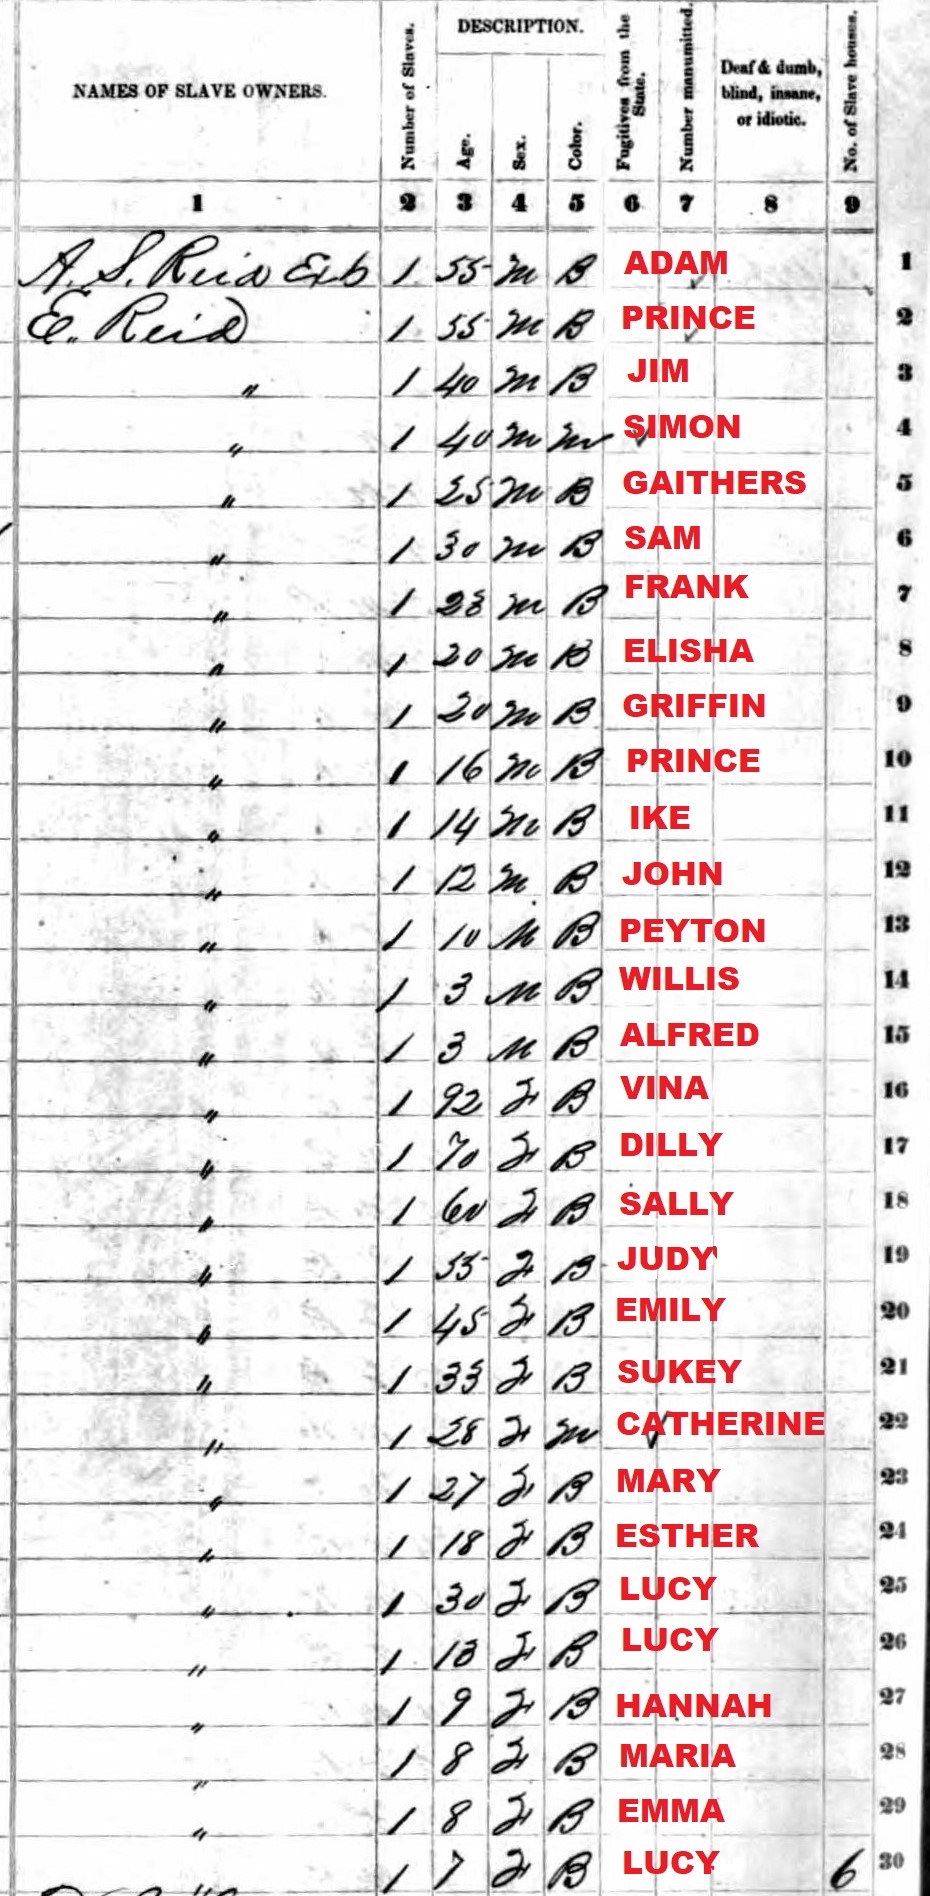 NAMES OF SLAVE OWNERS. Number of Slaves. DESCRIPTION. Fugitives from the State. Number manumitted. Deaf & dumb, blind, insane, or idiotic. No. of Slave houses.
Age. Sex. Color.
1 2 3 4 5 6 7 8 9
A. S. Reid 1 55 M B ADAM 1
E. Reid 1 55 M B PRINCE 2
" 1 40 M B JIM 3
" 1 40 M M SIMON 4
" 1 25 M B GAITHERS 5
" 1 30 M B SAM 6
" 1 28 M B FRANK 7
" 1 20 M B ELISHA 8
" 1 20 M B GRIFFIN 9
" 1 16 M B PRINCE 10
" 1 14 M B IKE 11
" 1 12 M B JOHN 12
" 1 10 M B PEYTON 13
" 1 3 M B WILLIS 14
" 1 3 M B ALFRED 15
" 1 92 F B VINA 16
" 1 70 F B DILLY 17
" 1 60 F B SALLY 18
" 1 55 F B JUDY 19
" 1 45 F B EMILY 20
" 1 33 F B SUKEY 21
" 1 28 F M CATHERINE 22
" 1 27 F B MARY 23
" 1 18 F B ESTHER 24
" 1 30 F B LUCY 25
" 1 13 F B LUCY 26
" 1 9 F B HANNAH 27
" 1 8 F B MARIA 28
" 1 8 F B EMMA 29
1 7 F B LUCY 6 30